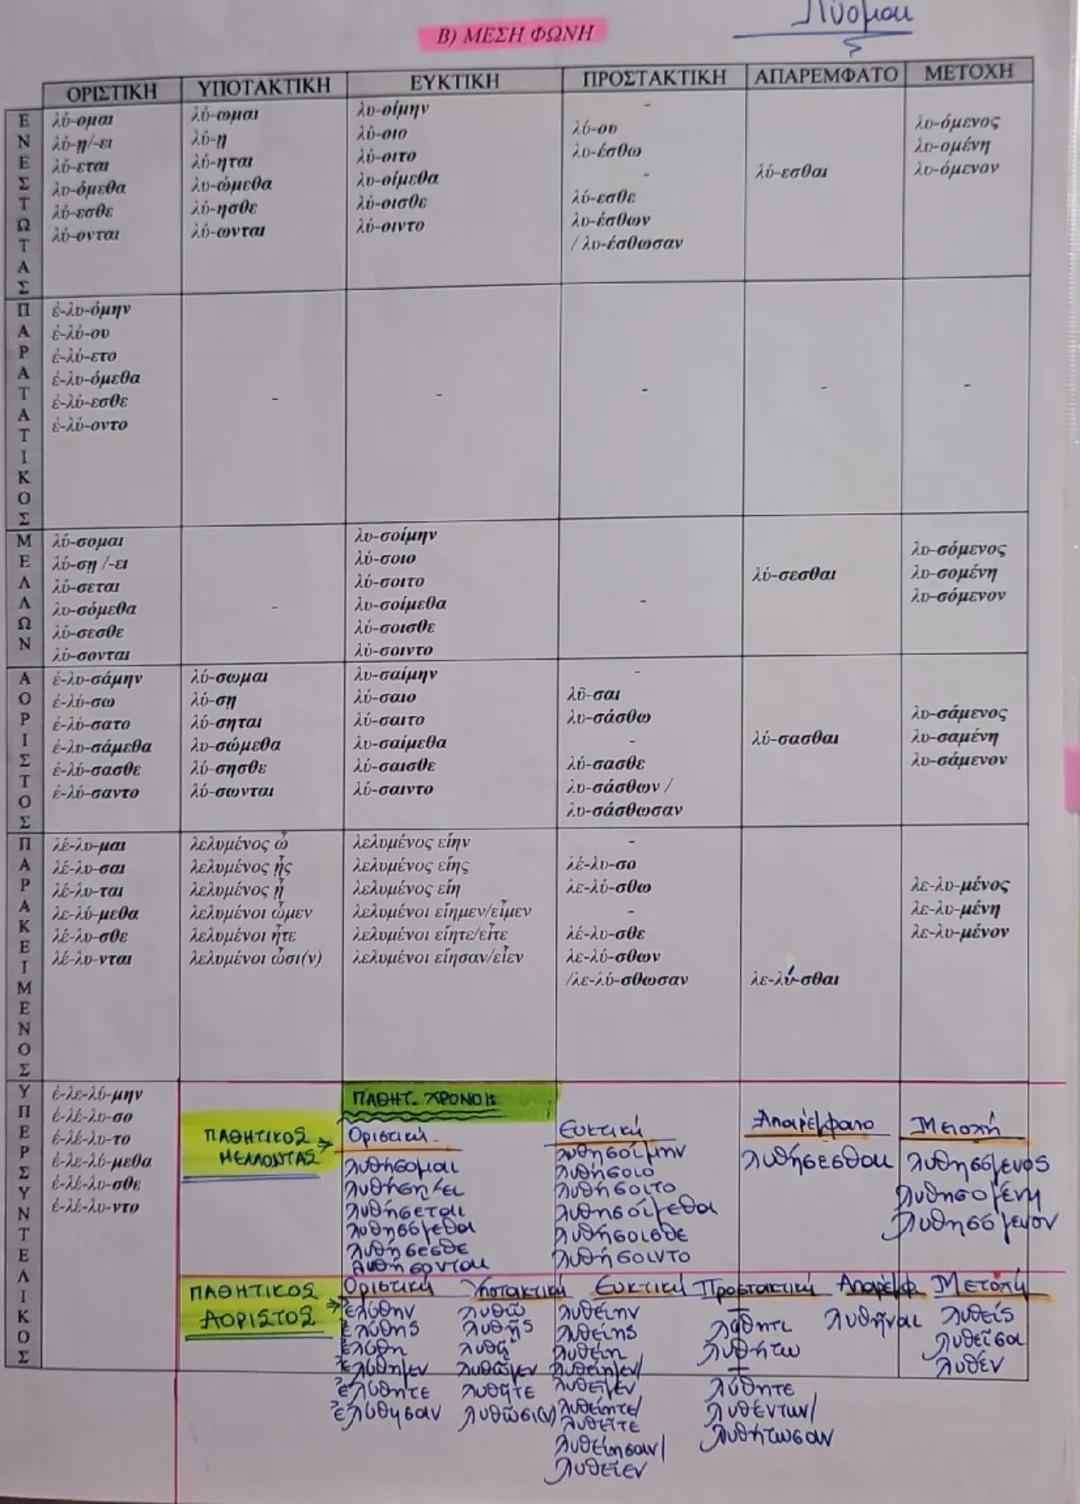 Λύομαι
Β) ΜΕΣΗ ΦΩΝΗ
ΟΡΙΣΤΙΚΗ ΥΠΟΤΑΚΤΙΚΗ ΕΥΚΤΙΚΗ ΠΡΟΣΤΑΚΤΙΚΗ ΑΠΑΡΕΜΦΑΤΟ ΜΕΤΟΧΗ
ΕΝΕΣΤΩΤΑΣ
λύ-ομαι
λύ-η/-ει
λύ-εται
λυ-όμεθα
λύ-εσθε
λύ-ονται
λύ-ωμαι
λύ-η
λύ-ηται
λυ-ώμεθα
λύ-ησθε
λύ-ωνται
λυ-οίμην
λύ-οιο
λύ-οιτο
λυ-οίμεθα
λύ-οισθε
λύ-οιντο
-
λύ-ου
λυ-έσθω
-
λύ-εσθε
λυ-έσθων
/ λυ-έσθωσαν
λύ-εσθαι
λυ-όμενος
λυ-ομένη
λυ-όμενον
ΠΑΡΑΤΑΤΙΚΟΣ
ἐ-λυ-όμην
ἐ-λύ-ου
ἐ-λύ-ετο
ἐ-λυ-όμεθα
ἐ-λύ-εσθε
ἐ-λύ-οντο
-
-
-
-
-
ΜΕΛΛΩΝ
λύ-σομαι
λύ-ση /-ει
λύ-σεται
λυ-σόμεθα
λύ-σεσθε
λύ-σονται
-
λυ-σοίμην
λύ-σοιο
λύ-σοιτο
λυ-σοίμεθα
λύ-σοισθε
λύ-σοιντο
-
λύ-σεσθαι
λυ-σόμενος
λυ-σομένη
λυ-σόμενον
ΑΟΡΙΣΤΟΣ
ἐ-λυ-σάμην
ἐ-λύ-σω
ἐ-λύ-σατο
ἐ-λυ-σάμεθα
ἐ-λύ-σασθε
ἐ-λύ-σαντο
λύ-σωμαι
λύ-ση
λύ-σηται
λυ-σώμεθα
λύ-σησθε
λύ-σωνται
λυ-σαίμην
λύ-σαιο
λύ-σαιτο
λυ-σαίμεθα
λύ-σαισθε
λύ-σαιντο
-
λῦ-σαι
λυ-σάσθω
-
λύ-σασθε
λυ-σάσθων /
λυ-σάσθωσαν
λύ-σασθαι
λυ-σάμενος
λυ-σαμένη
λυ-σάμενον
ΠΑΡΑΚΕΙΜΕΝΟΣ
λέ-λυ-μαι
λέ-λυ-σαι
λέ-λυ-ται
λε-λύ-μεθα
λέ-λυ-σθε
λέ-λυ-νται
λελυμένος ὦ
λελυμένος ᾖς
λελυμένος ᾖ
λελυμένοι ὦμεν
λελυμένοι ἦτε
λελυμένοι ὦσι(ν)
λελυμένος εἴην
λελυμένος εἴης
λελυμένος εἴη
λελυμένοι εἴημεν/εἶμεν
λελυμένοι εἴητε/εἶτε
λελυμένοι εἴησαν/εἶεν
-
λέ-λυ-σο
λε-λύ-σθω
-
λέ-λυ-σθε
λε-λύ-σθων
/λε-λύ-σθωσαν
λε-λύ-σθαι
λε-λυ-μένος
λε-λυ-μένη
λε-λυ-μένον
ΥΠΕΡΣΥΝΤΕΛΙΚΟΣ
ἐ-λε-λύ-μην
ἐ-λέ-λυ-σο
ἐ-λέ-λυ-το
ἐ-λε-λύ-μεθα
ἐ-λέ-λυ-σθε
ἐ-λέ-λυ-ντο
ΠΑΘΗΤ. ΧΡΟΝΟΙ:
ΠΑΘΗΤΙΚΟΣ
ΜΕΛΛΟΝΤΑΣ
Οριστική
λυθήσομαι
λυθήση/ει
λυθήσεται
λυθησόμεθα
λυθήσεσθε
λυθήσονται
Ευκτική
λυθησοίμην
λυθήσοιο
λυθήσοιτο
λυθησοίμεθα
λυθήσοισθε
λυθήσοιντο
Απαρέμφατο
λυθήσεσθαι
Μετοχή
λυθησόμενος
λυθησομένη
λυθησόμενον
ΠΑΘΗΤΙΚΟΣ
ΑΟΡΙΣΤΟΣ
Οριστική
ἐλύθην
ἐλύθης
ἐλύθη
ἐλύθημεν
ἐλύθητε
ἐλύθησαν
Υποτακτική
λυθῶ
λυθῇς
λυθῇ
λυθῶμεν
λυθῆτε
λυθῶσι(ν)
Ευκτική
λυθείην
λυθείης
λυθείη
λυθείημεν/
λυθεῖμεν
λυθείητε/
λυθεῖτε
λυθείησαν/
λυθεῖεν
Προστακτική
-
λύθητι
λυθήτω
-
λύθητε
λυθέντων/
λυθήτωσαν
Απαρέμφ.
λυθῆναι
Μετοχή
λυθείς
λυθεῖσα
λυθέν